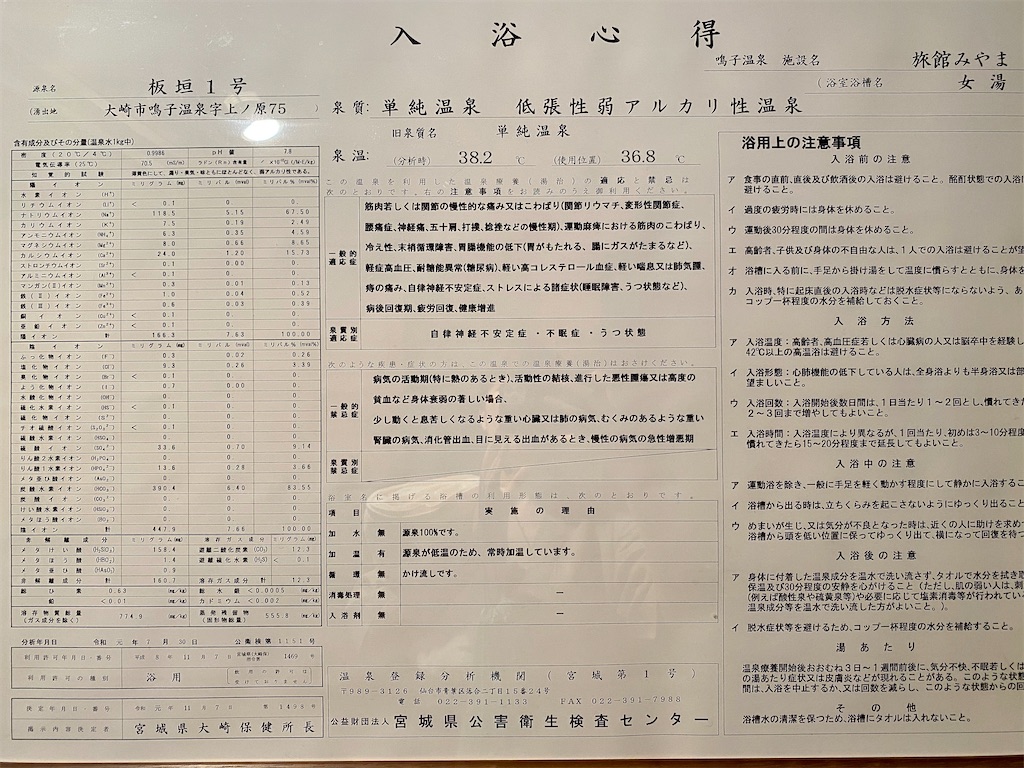 入浴心得
鳴子温泉 施設名 旅館みやま
(浴室浴槽名 女湯
源泉名 板垣1号
(湧出地 大崎市鳴子温泉字上ノ原75 )
泉質: 単純温泉 低張性弱アルカリ性温泉
旧泉質名 単純温泉
泉温: (分析時) 38.2 ℃ (使用位置) 36.8 ℃
含有成分及びその分量(温泉水1kg中)
密度(20℃/4℃) 0.9986 pH値 7.8
電気伝導率(25℃) 70.5 (mS/m) ラドン(Rn)含有量
陽イオン ミリグラム(mg/kg) ミリバル(mval) ミリバル%(mval%)
水素イオン (H⁺) 0. 0.
リチウムイオン (Li⁺) < 0.1 0. 0.
ナトリウムイオン (Na⁺) 118.5 5.15 67.50
カリウムイオン (K⁺) 7.5 0.19 2.49
アンモニウムイオン (NH₄⁺) 6.3 0.35 4.59
マグネシウムイオン (Mg²⁺) 8.0 0.66 8.65
カルシウムイオン (Ca²⁺) 24.0 1.20 15.73
ストロンチウムイオン (Sr²⁺) 0.1 0.00 0.00
アルミニウムイオン (Al³⁺) < 0.1 0. 0.
マンガン(Ⅱ)イオン (Mn²⁺) 0.3 0.01 0.13
鉄(Ⅱ)イオン (Fe²⁺) 1.0 0.04 0.52
鉄(Ⅲ)イオン (Fe³⁺) 0.6 0.03 0.39
銅イオン (Cu²⁺) < 0.1 0. 0.
亜鉛イオン (Zn²⁺) < 0.1 0. 0.
陽イオン計 166.3 7.63 100.00
陰イオン ミリグラム(mg/kg) ミリバル(mval) ミリバル%(mval%)
ふっ化物イオン (F⁻) 0.3 0.02 0.26
塩化物イオン (Cl⁻) 9.3 0.26 3.39
臭化物イオン (Br⁻) < 0.1 0. 0.
よう化物イオン (I⁻) 0.7 0.00 0.00
水酸化物イオン (OH⁻) 0. 0. 0.
硫化水素イオン (HS⁻) < 0.1 0. 0.
硫化物イオン (S²⁻) 0. 0. 0.
チオ硫酸イオン (S₂O₃²⁻) < 0.1 0. 0.
硫酸水素イオン (HSO₄⁻) 0. 0. 0.
硫酸イオン (SO₄²⁻) 33.6 0.70 9.14
りん酸2水素イオン (H₂PO₄⁻) 0. 0. 0.
りん酸1水素イオン (HPO₄²⁻) 13.6 0.28 3.66
メタ亜ひ酸イオン (AsO₂⁻) 0. 0. 0.
炭酸水素イオン (HCO₃⁻) 390.4 6.40 83.55
炭酸イオン (CO₃²⁻) 0. 0. 0.
けい酸水素イオン 0. 0. 0.
メタほう酸イオン (BO₂⁻) 0. 0. 0.
陰イオン計 447.9 7.66 100.00
非解離成分 ミリグラム(mg/kg) 溶存ガス成分 ミリグラム(mg/kg)
メタけい酸 (H₂SiO₃) 158.4 遊離二酸化炭素 (CO₂) 12.3
メタほう酸 (HBO₂) 1.4 遊離硫化水素 (H₂S) < 0.1
メタ亜ひ酸 (HAsO₂) 0.9
非解離成分計 160.7 溶存ガス成分計 12.3
総ひ素 0.63 (mg/kg) 総水銀 <0.0005 (mg/kg)
鉛 <0.01 (mg/kg) カドミウム <0.002 (mg/kg)
溶存物質総量(ガス成分を除く) 774.9 (mg/kg) 蒸発残留物(固形物総量) 555.8 (mg/kg)
分析年月日 令和元年7月30日 公衛検第1151号
利用許可年月日・番号 平成8年11月7日 1469号
利用許可の種別 浴用
決定年月日・番号 令和元年11月7日 第1498号
掲示内容決定者 宮城県大崎保健所長
この温泉を利用した温泉療養(湯治)の適応と禁忌は
次のとおりです。右の注意事項をお読みのうえ御利用ください。
一般的適応症
筋肉若しくは関節の慢性的な痛み又はこわばり(関節リウマチ、変形性関節症、
腰痛症、神経痛、五十肩、打撲、捻挫などの慢性期)、運動麻痺における筋肉のこわばり、
冷え性、末梢循環障害、胃腸機能の低下(胃がもたれる、腸にガスがたまるなど)、
軽症高血圧、耐糖能異常(糖尿病)、軽い高コレステロール血症、軽い喘息又は肺気腫、
痔の痛み、自律神経不安定症、ストレスによる諸症状(睡眠障害、うつ状態など)、
病後回復期、疲労回復、健康増進
泉質別適応症 自律神経不安定症・不眠症・うつ状態
次のような疾患・症状の方は、この温泉での温泉療養(湯治)はおさけください。
一般的禁忌症
病気の活動期(特に熱のあるとき)、活動性の結核、進行した悪性腫瘍又は高度の
貧血など身体衰弱の著しい場合、
少し動くと息苦しくなるような重い心臓又は肺の病気、むくみのあるような重い
腎臓の病気、消化管出血、目に見える出血があるとき、慢性の病気の急性増悪期
泉質別禁忌症
浴室名に掲げる浴槽の利用形態は、次のとおりです。
項目 実施の理由
加水 無 源泉100%です。
加温 有 源泉が低温のため、常時加温しています。
循環 無 かけ流しです。
消毒処理 無 ―
入浴剤 無 ―
温泉登録分析機関(宮城第1号)
〒989-3126 仙台市青葉区落合二丁目15番24号
電話 022-391-1133 FAX 022-391-7988
公益財団法人 宮城県公害衛生検査センター
浴用上の注意事項
入浴前の注意
ア 食事の直前、直後及び飲酒後の入浴は避けること。酩酊状態での入浴
避けること。
イ 過度の疲労時には身体を休めること。
ウ 運動後30分程度の間は身体を休めること。
エ 高齢者、子供及び身体の不自由な人は、1人での入浴は避けることが望
オ 浴槽に入る前に、手足から掛け湯をして温度に慣らすとともに、身体を
カ 入浴時、特に起床直後の入浴時などは脱水症状等にならないよう、あ
コップ一杯程度の水分を補給しておくこと。
入浴方法
ア 入浴温度:高齢者、高血圧症若しくは心臓病の人又は脳卒中を経験し
42℃以上の高温浴は避けること。
イ 入浴形態:心肺機能の低下している人は、全身浴よりも半身浴又は部
望ましいこと。
ウ 入浴回数:入浴開始後数日間は、1日当たり1~2回とし、慣れてきた
2~3回まで増やしてもよいこと。
エ 入浴時間:入浴温度により異なるが、1回当たり、初めは3~10分程度
慣れてきたら15~20分程度まで延長してもよいこと。
入浴中の注意
ア 運動浴を除き、一般に手足を軽く動かす程度にして静かに入浴するこ
イ 浴槽から出る時は、立ちくらみを起こさないようにゆっくり出ること
ウ めまいが生じ、又は気分が不良となった時は、近くの人に助けを求め
浴槽から頭を低い位置に保ってゆっくり出て、横になって回復を待つ
入浴後の注意
ア 身体に付着した温泉成分を温水で洗い流さず、タオルで水分を拭き取
保温及び30分程度の安静を心がけること(ただし、肌の弱い人は、刺
(例えば酸性泉や硫黄泉等)や必要に応じて塩素消毒等が行われてい
温泉成分等を温水で洗い流した方がよいこと。)。
イ 脱水症状等を避けるため、コップ一杯程度の水分を補給すること。
湯あたり
温泉療養開始後おおむね3日~1週間前後に、気分不快、不眠若しくは
の湯あたり症状又は皮膚炎などが現れることがある。このような状態
間は、入浴を中止するか、又は回数を減らし、このような状態からの回
その他
浴槽水の清潔を保つため、浴槽にタオルは入れないこと。